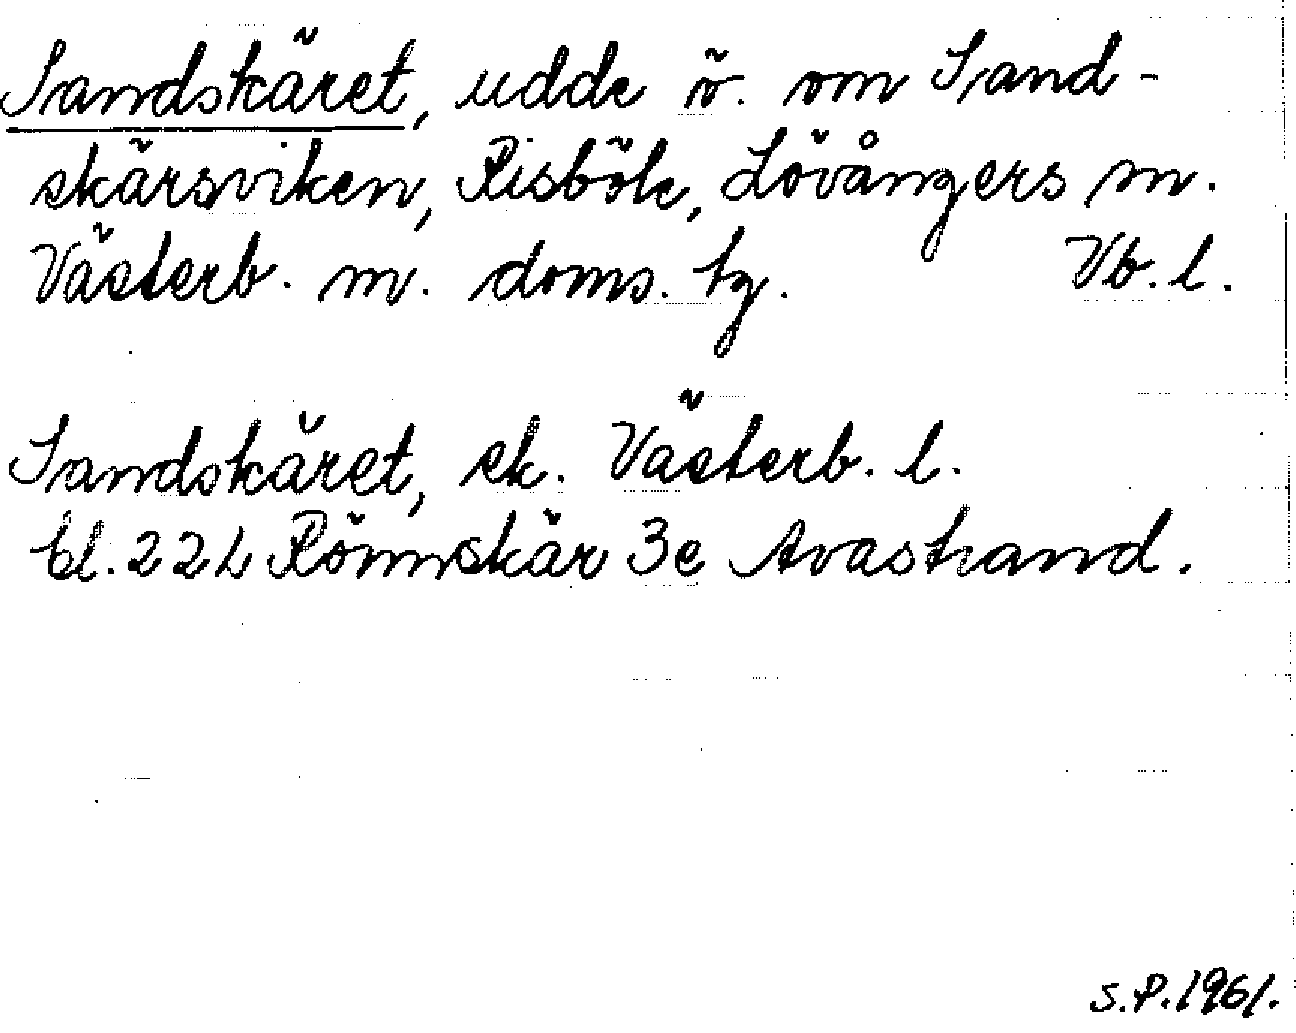 Sandskäret, udde ö. om Sand-
skärsviken, Risböle, Lövångers sn.
Västerb. n. doms. tg. Vb. l.
Sandskäret, ek. Västerb. l.
bl. 22L Rönnskär 3e Avastrand.
S.P. 1961.